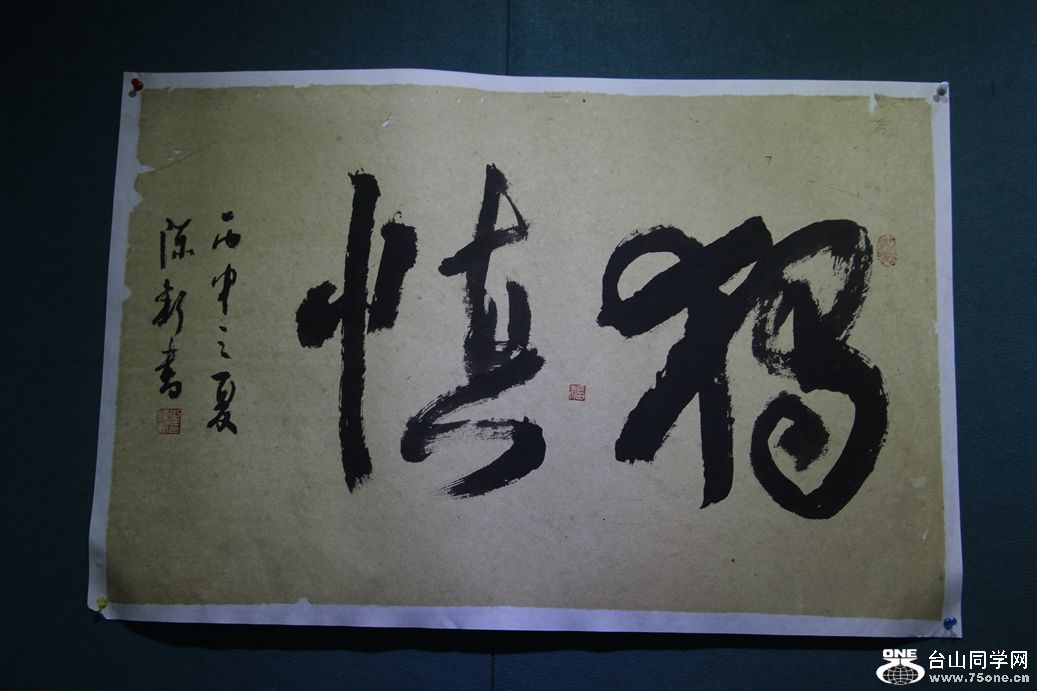 獨慎
丙申之夏
陳新書
ONE 台山同学网
www.75one.cn